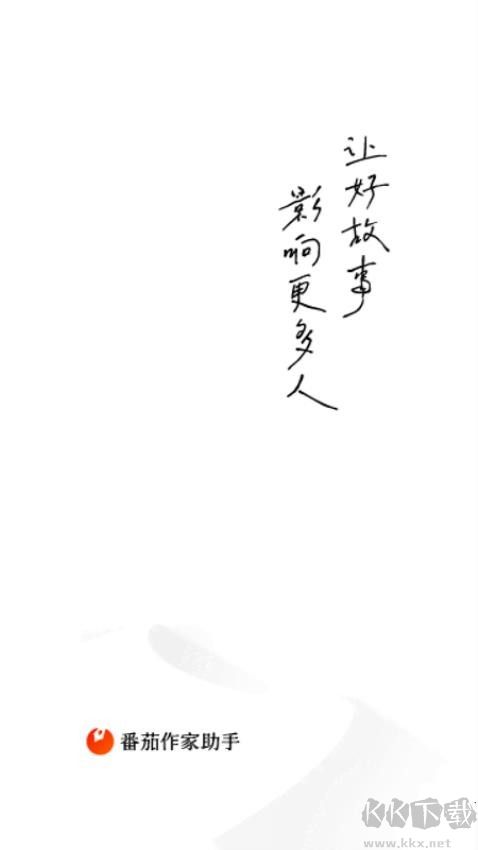 让好故事
影响更多人
番茄作家助手
KK下载
www.kkx.net